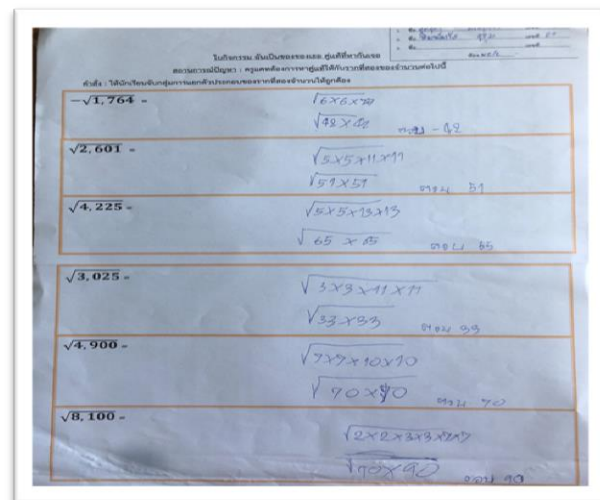 ใบกิจกรรม ฉันเป็นของของเธอ คู่แท้ที่หากันเจอ
สถานการณ์ปัญหา : ครูแคทต้องการหาคู่แท้ให้กับรากที่สองของจำนวนต่อไปนี้
คำสั่ง : ให้นักเรียนจับกลุ่มการแยกตัวประกอบของรากที่สองจำนวนให้ถูกต้อง
−√1,764 =
√42 × 42
ตอบ - 42
√2,601 =
√5×5×11×11
√51×51
ตอบ 51
√4,225 =
√5×5×13×13
√65 × 65
ตอบ 65
√3,025 =
√3×3×11×11
√33×33
ตอบ 33
√4,900 =
√7×7×10×10
√70×70
ตอบ 70
√8,100 =
√2×2×3×3×7×7
ตอบ 90